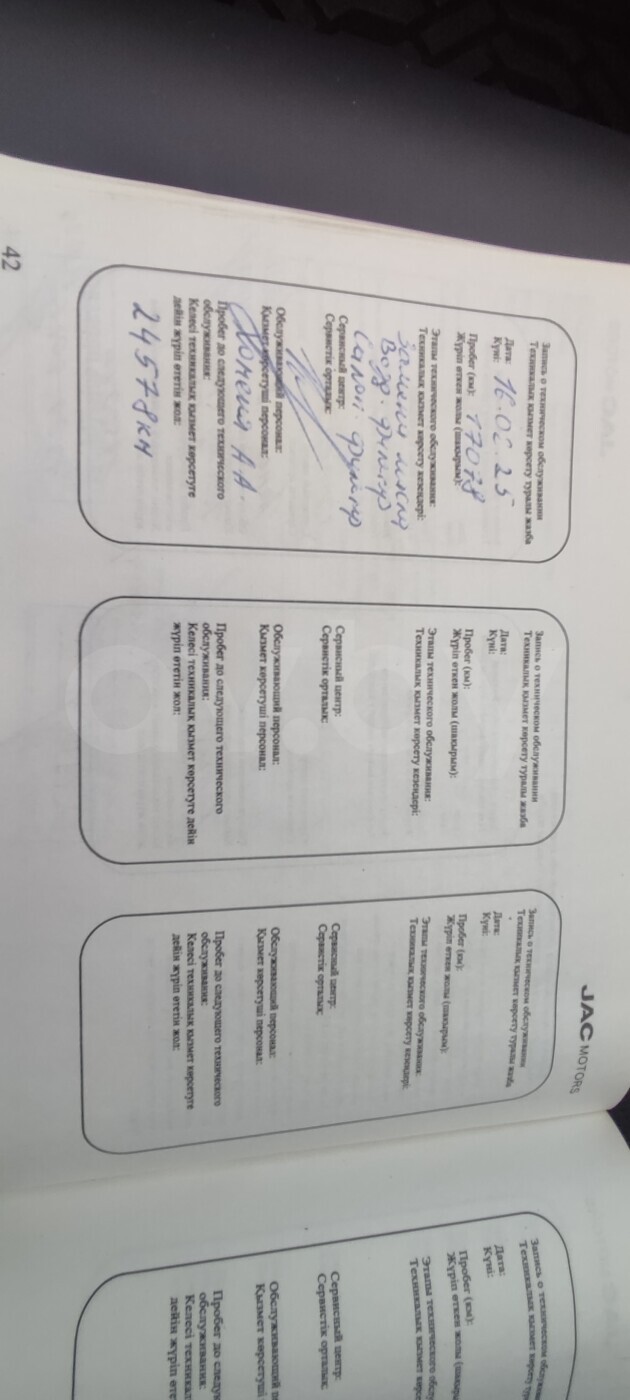 JAC MOTORS
Запись о техническом обслуживании
Техникалық қызмет көрсету туралы жазба
Дата: 16.06.25
Күні:
Пробег (км): 17078
Жүріп өткен жолы (шақырым):
Этапы технического обслуживания:
Техникалық қызмет көрсету кезеңдері:
Замена масла
Возд. Фильтр
Салон Фильтр
Сервисный центр:
Сервистік орталық:
Обслуживающий персонал:
Қызмет көрсетуші персонал:
А.А.
Пробег до следующего технического
обслуживания:
Келесі техникалық қызмет көрсетуге
дейін жүріп өтетін жол:
24578км
Запись о техническом обслуживании
Техникалық қызмет көрсету туралы жазба
Дата:
Күні:
Пробег (км):
Жүріп өткен жолы (шақырым):
Этапы технического обслуживания:
Техникалық қызмет көрсету кезеңдері:
Сервисный центр:
Сервистік орталық:
Обслуживающий персонал:
Қызмет көрсетуші персонал:
Пробег до следующего технического
обслуживания:
Келесі техникалық қызмет көрсетуге дейін
жүріп өтетін жол:
Запись о техническом обслуживании
Техникалық қызмет көрсету туралы жазба
Дата:
Күні:
Пробег (км):
Жүріп өткен жолы (шақырым):
Этапы технического обслуживания:
Техникалық қызмет көрсету кезеңдері:
Сервисный центр:
Сервистік орталық:
Обслуживающий персонал:
Қызмет көрсетуші персонал:
Пробег до следующего технического
обслуживания:
Келесі техникалық қызмет көрсетуге
дейін жүріп өтетін жол:
42
Запись о техническом обслужи
Техникалық қызмет көрсету ту
Дата:
Күні:
Пробег (км):
Жүріп өткен жолы (шақ
Этапы технического об
Техникалық қызмет кө
Сервисный центр:
Сервистік орталық:
Обслуживающий
Қызмет көрсету
Пробег до следу
обслуживания:
Келесі техника
дейін жүріп өте